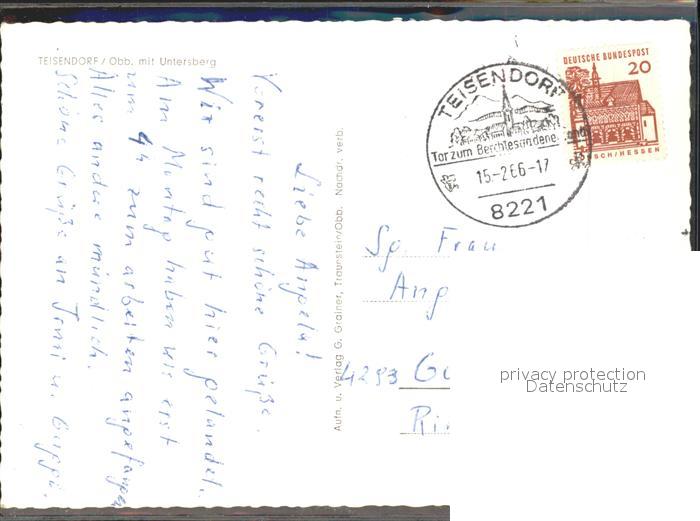 TEISENDORF / Obb. mit Untersberg
Liebe Angela!
Vorerst recht schöne Grüße.
Wir sind gut hier gelandet.
Am Montag haben wir erst
um 4h zum arbeiten angefangen
Alles andere mündlich.
Schöne Grüße an Irmi u.
Aufn. u. Verlag G. Grainer, Traunstein/Obb. Nachdr. verb.
TEISENDORF
Tor zum Berchtesgadene
15-2 66-17
8221
DEUTSCHE BUNDESPOST
20
SCH/HESSEN
Frau
Ang
4293 G
Ri
privacy protection
Datenschutz